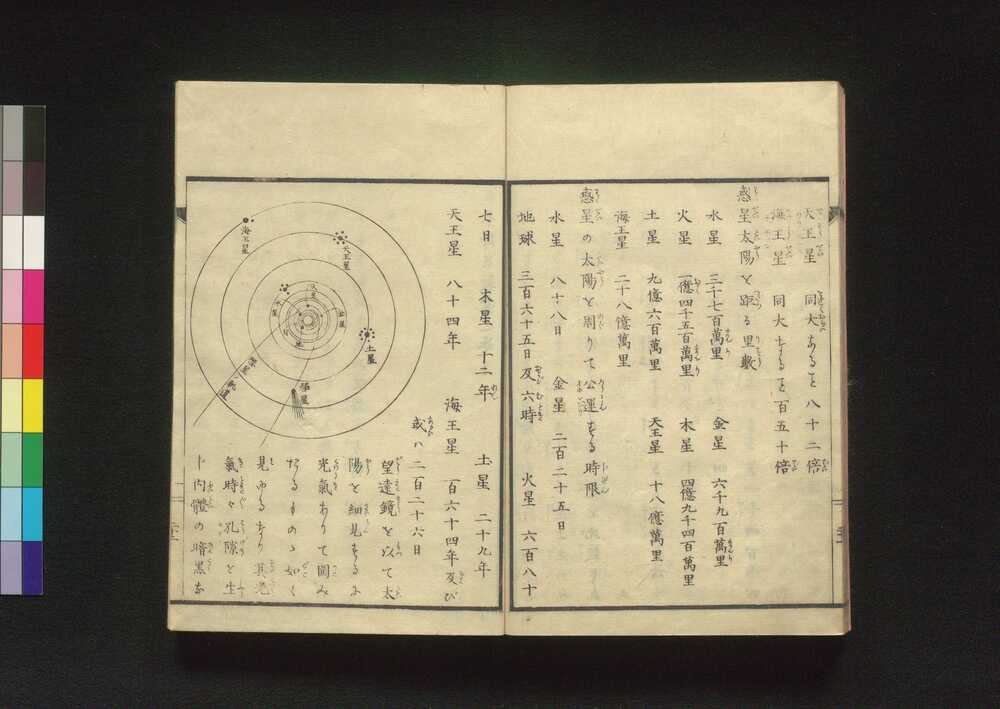 天王星 同大なること八十二倍
海王星 同大なること百五十倍
惑星太陽を距る里數
水星 三千七百萬里 金星 六千九百萬里
火星 一億四千五百萬里 木星 四億九千四百萬里
土星 九億六百萬里 天王星 十八億萬里
海王星 二十八億萬里
惑星の太陽を周りて公運する時限
水星 八十八日 金星 二百二十五日
地球 三百六十五日及六時 火星 六百八十
七日 木星 十二年 土星 二十九年
天王星 八十四年 海王星 百六十四年及び
或ハ二百二十六日
望遠鏡を以て太
陽を細見するに
光氣ありて圍み
たるものゝ如く
見ゆるなり其光
氣時々孔隙を生
ト内體の暗黒な
海王星
天王星
土星
彗星
彗星軌道